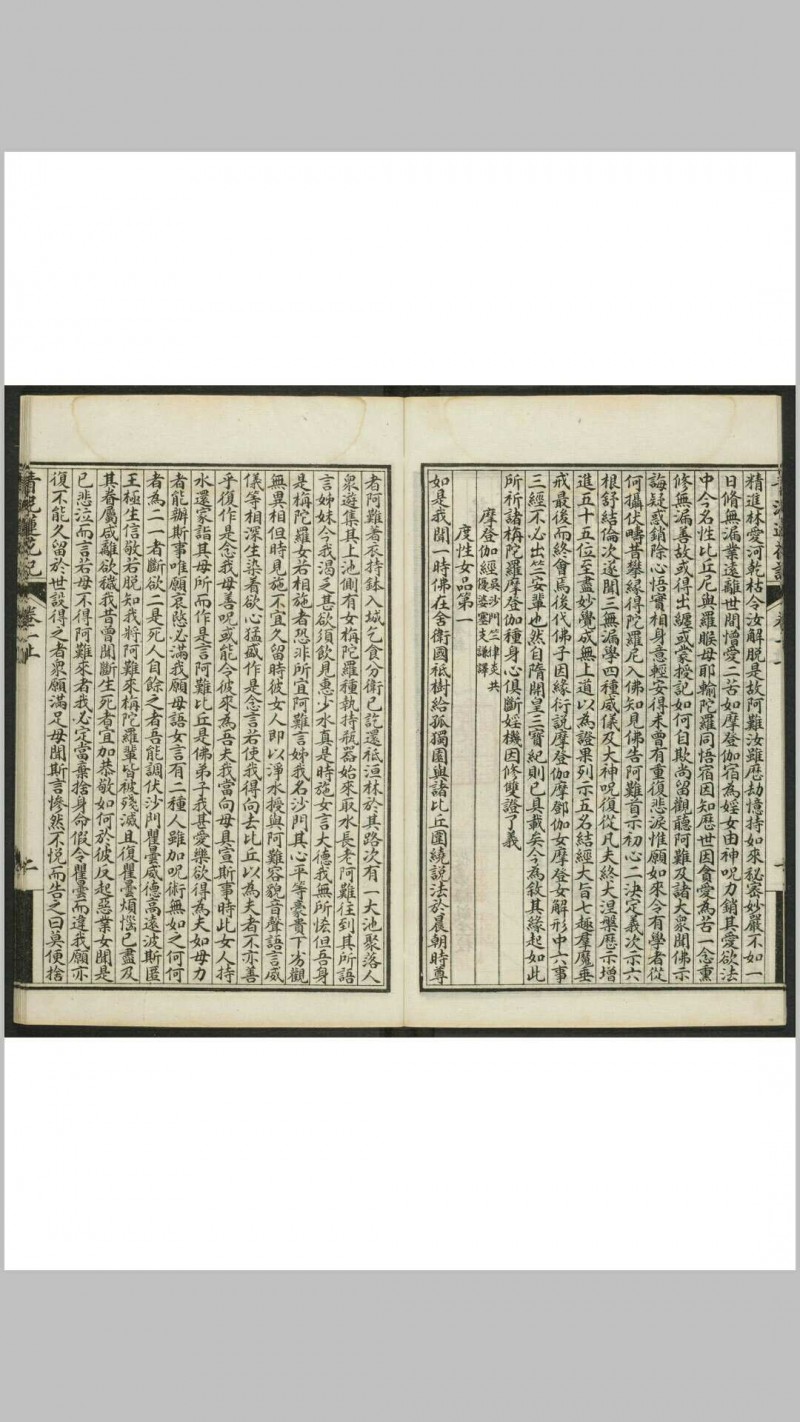 精進林愛河乾枯令汝解脫是故阿難汝雖歷劫憶持如來秘密妙嚴不如一
日脩無漏業遠離世間憎愛二苦如摩登伽宿為婬女由神呪力銷其愛欲法
中今名性比丘尼與羅睺母耶輸陀羅同悟宿因知歷世因貪愛為苦一念熏
修無漏善故或得出纏或蒙授記如何自欺尚留觀聽阿難及諸大衆聞佛示
誨疑惑銷除心悟實相身意輕安得未曾有重復悲淚惟願如來今有學者從
何攝伏疇昔攀緣得陀羅尼入佛知見佛告阿難首示初心二決定義次示六
根舒結倫次遂聞三無漏學四種威儀及大神呪復從凡夫終大涅槃歷示增
進五十五位至盡妙覺成無上道以為證果列示五名結經大旨七趣羣魔垂
戒最後而終會焉後代佛子因緣衍說摩登伽摩鄧伽女摩登女解形中六事
三經不必出竺安輩也然自隋開皇三寶紀則已具載矣今為敘其緣起如此
所祈諸栴陀羅摩登伽種身心俱斷婬機因修雙證了義
摩登伽經吳沙門竺律炎共優婆塞支謙譯
度性女品第一
如是我聞一時佛在舍衛國祇樹給孤獨園與諸比丘圍繞說法於晨朝時尊
者阿難著衣持鉢入城乞食分衛已訖還祇洹林於其路次有一大池聚落人
衆遊集其上池側有女栴陀羅種執持瓶器始來取水長老阿難往到其所語
言姊妹今我渴乏甚欲須飲見惠少水真是時施女言大德我無所悋但吾身
是栴陀羅女若相施者恐非所宜阿難言姊我名沙門其心平等豪貴下劣觀
無異相但時見施不宜久留時彼女人即以淨水授與阿難容貌音聲語言威
儀等相深生染着欲心猛盛作是念言若使我得向去比丘以為夫者不亦善
乎復作是念我母善呪或能令彼來為吾夫我當向母具宣斯事時此女人持
水還家詣其母所而作是言阿難比丘是佛弟子我甚愛樂欲得為夫如母力
者能辦斯事唯願哀愍必滿我願母語女言有二種人雖加呪術無如之何何
者為二一者斷欲二是死人自餘之者吾能調伏沙門瞿曇威德高遠波斯匿
王極生信敬若脫知我將阿難來栴陀羅輩皆被殘滅且復瞿曇煩惱已盡及
其眷屬咸離欲穢我昔曾聞斷生死者宜加恭敬如何於彼反起惡業女聞是
已悲泣而言若母不得阿難來者我必定當棄捨身命假令瞿曇而違我願亦
復不能久留於世設得之者衆願滿足母聞斯言慘然不悅而告之曰莫便捨